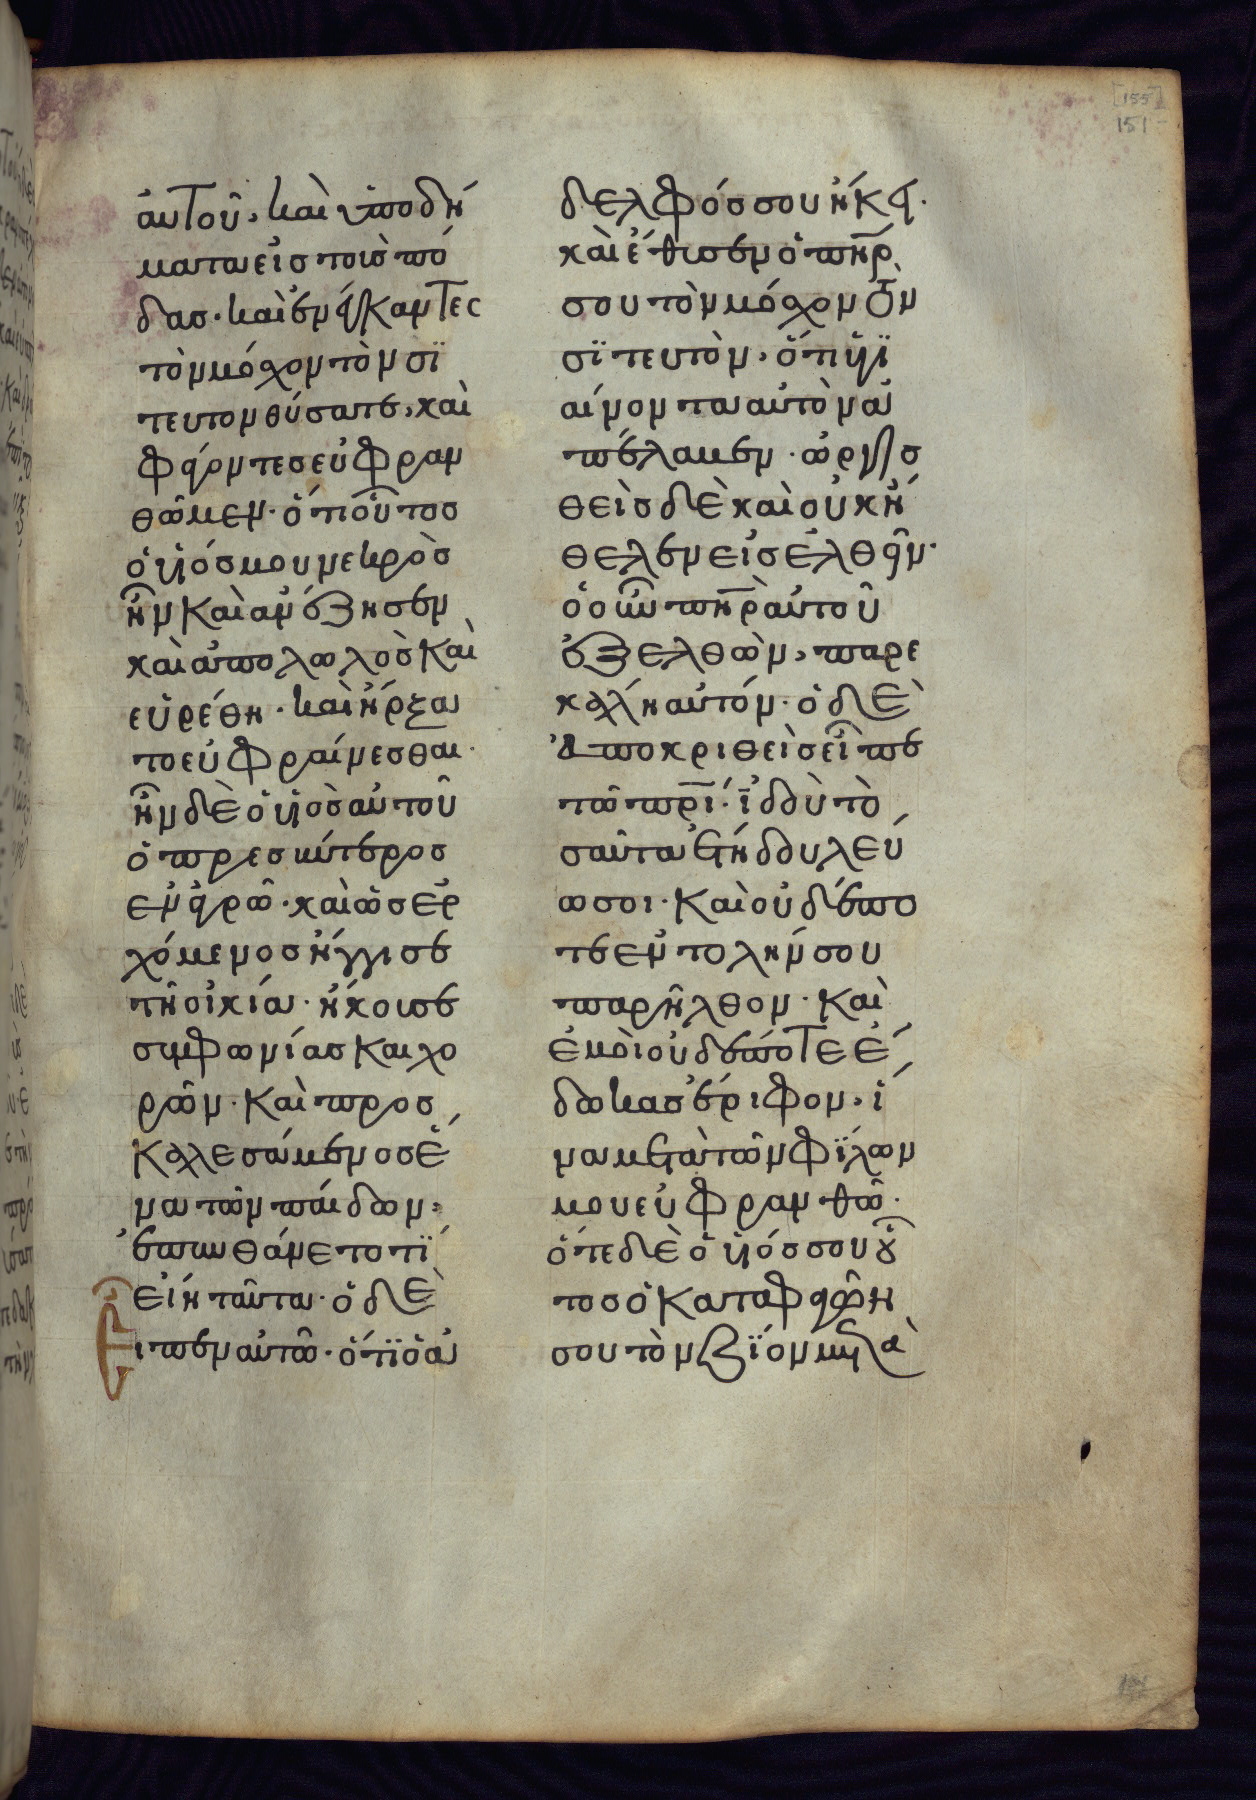 [155]
151
αὐτοῦ, καὶ ὑποδή
ματα εἰς τοὺσ πό
δασ· καὶ ἐνέγκαντες
τὸν μόσχον τὸν σϊ
τευτον θύσατε, καὶ
φαγόντεσ εὐφραν
θῶμεν· ὅτι οὗτοσ
ὁ υἱόσ μου νεκρὸσ
ἦν καὶ ἀνέζησεν
καὶ ἀπολωλὸσ καὶ
εὑρέθη· καὶ ἤρξαν
το εὐφραίνεσθαι·
ἦν δὲ ὁ υἱὸσ αὐτοῦ
ὁ πρεσβύτεροσ
ἐν ἀγρῶ· καὶ ὡσ ἐρ
χόμενοσ ἤγγισε
τῆ οἰκία· ἤκουσε
συμφωνίασ καὶ χο
ρῶν· καὶ προσ
καλεσάμενοσ ἕ
να τῶν παίδων,
ἐπυνθάνετο τί
εἴη ταῦτα· ὁ δὲ
εἶπεν αὐτῶ· ὅτι ὁ ἀ
δελφόσ σου ἥκει·
καὶ ἔθυσεν ὁ πηρ
σου τὸν μόσχον τὸν
σϊτευτὸν, ὅτι ὑγϊ
αίνοντα αὐτὸν ἀ
πέλαβεν· ὠργισ
θεὶσ δὲ καὶ οὐκ ἤ
θελεν εἰσελθεῖν·
ὁ οὖν πηρ αὐτοῦ
ἐξελθὼν, παρε
κάλει αὐτόν· ὁ δὲ
ἀποκριθεὶσ εἶπε
τῶ πρι· ἰδοὺ το
σαῦτα ἔτη δουλεύ
ω σοι· καὶ οὐδέπο
τε ἐντολήν σου
παρῆλθον· καὶ
ἐμοὶ οὐδέποτε ἔ
δωκασ ἔριφον, ἵ
να μετὰ τῶν φίλων
μου εὐφρανθῶ·
ὅτε δὲ ὁ υἱόσ σου οὗ
τοσ ὁ καταφαγών
σου τὸν βίον μετὰ